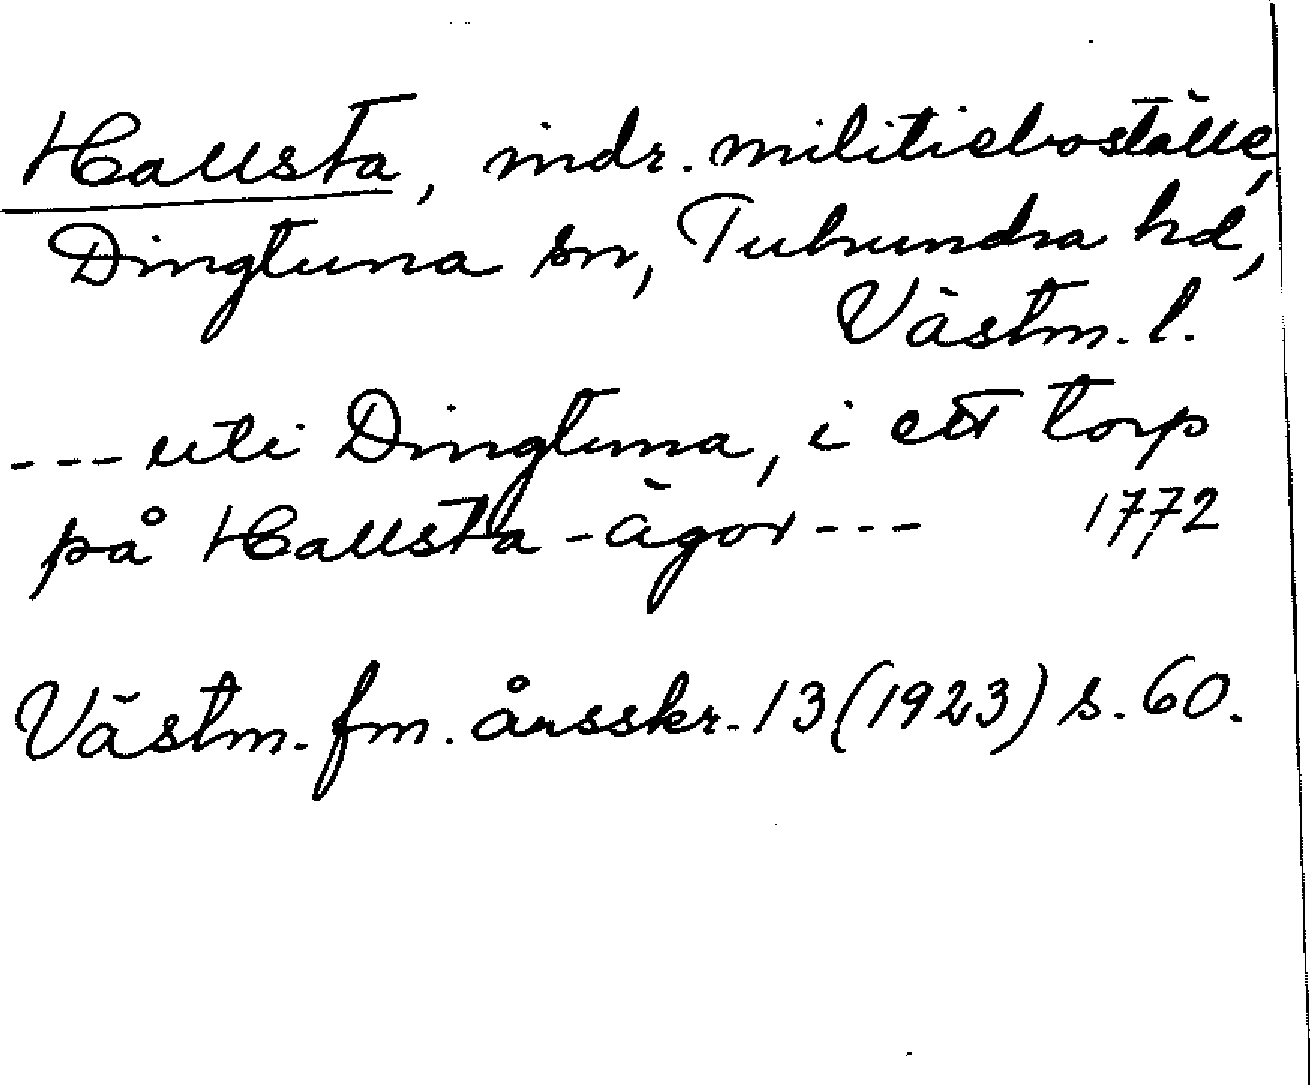 Hallsta, indr. militieboställe,
Dingtuna sn, Tuhundra hd,
Västm. l.
--- uti Dingtuna, i ett torp
på Hallsta-ägor --- 1772
Västm. fm. årsskr. 13 (1923) s. 60.